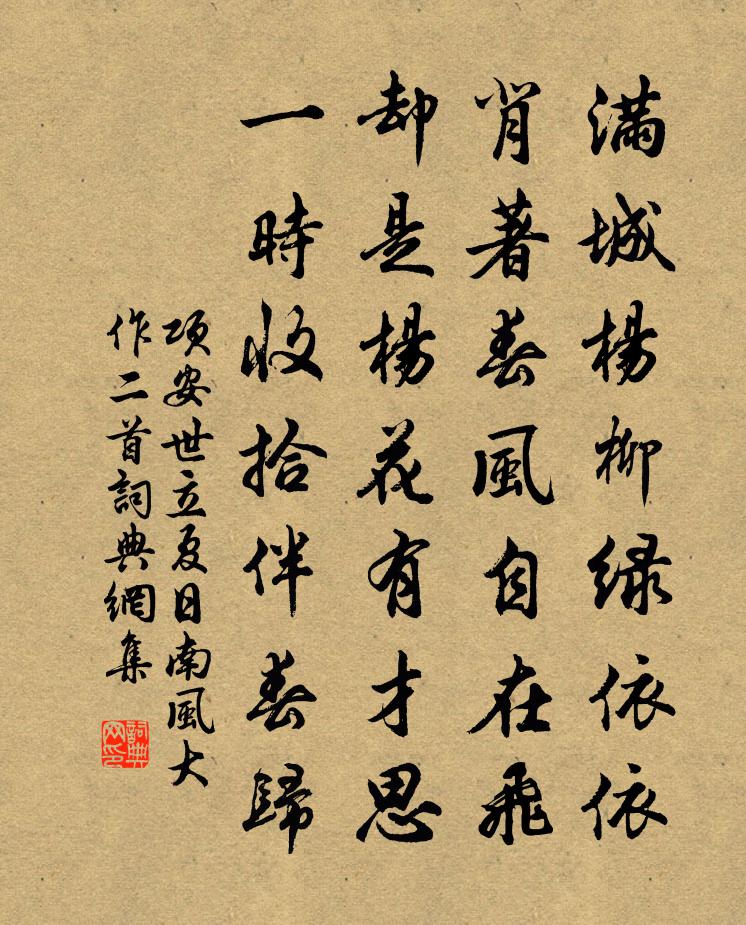 滿城楊柳綠依依
背著春風自在飛
却是楊花有才思
一時收拾伴春歸
項安世立夏日南風大
作二首詞典網集
詞典
网印